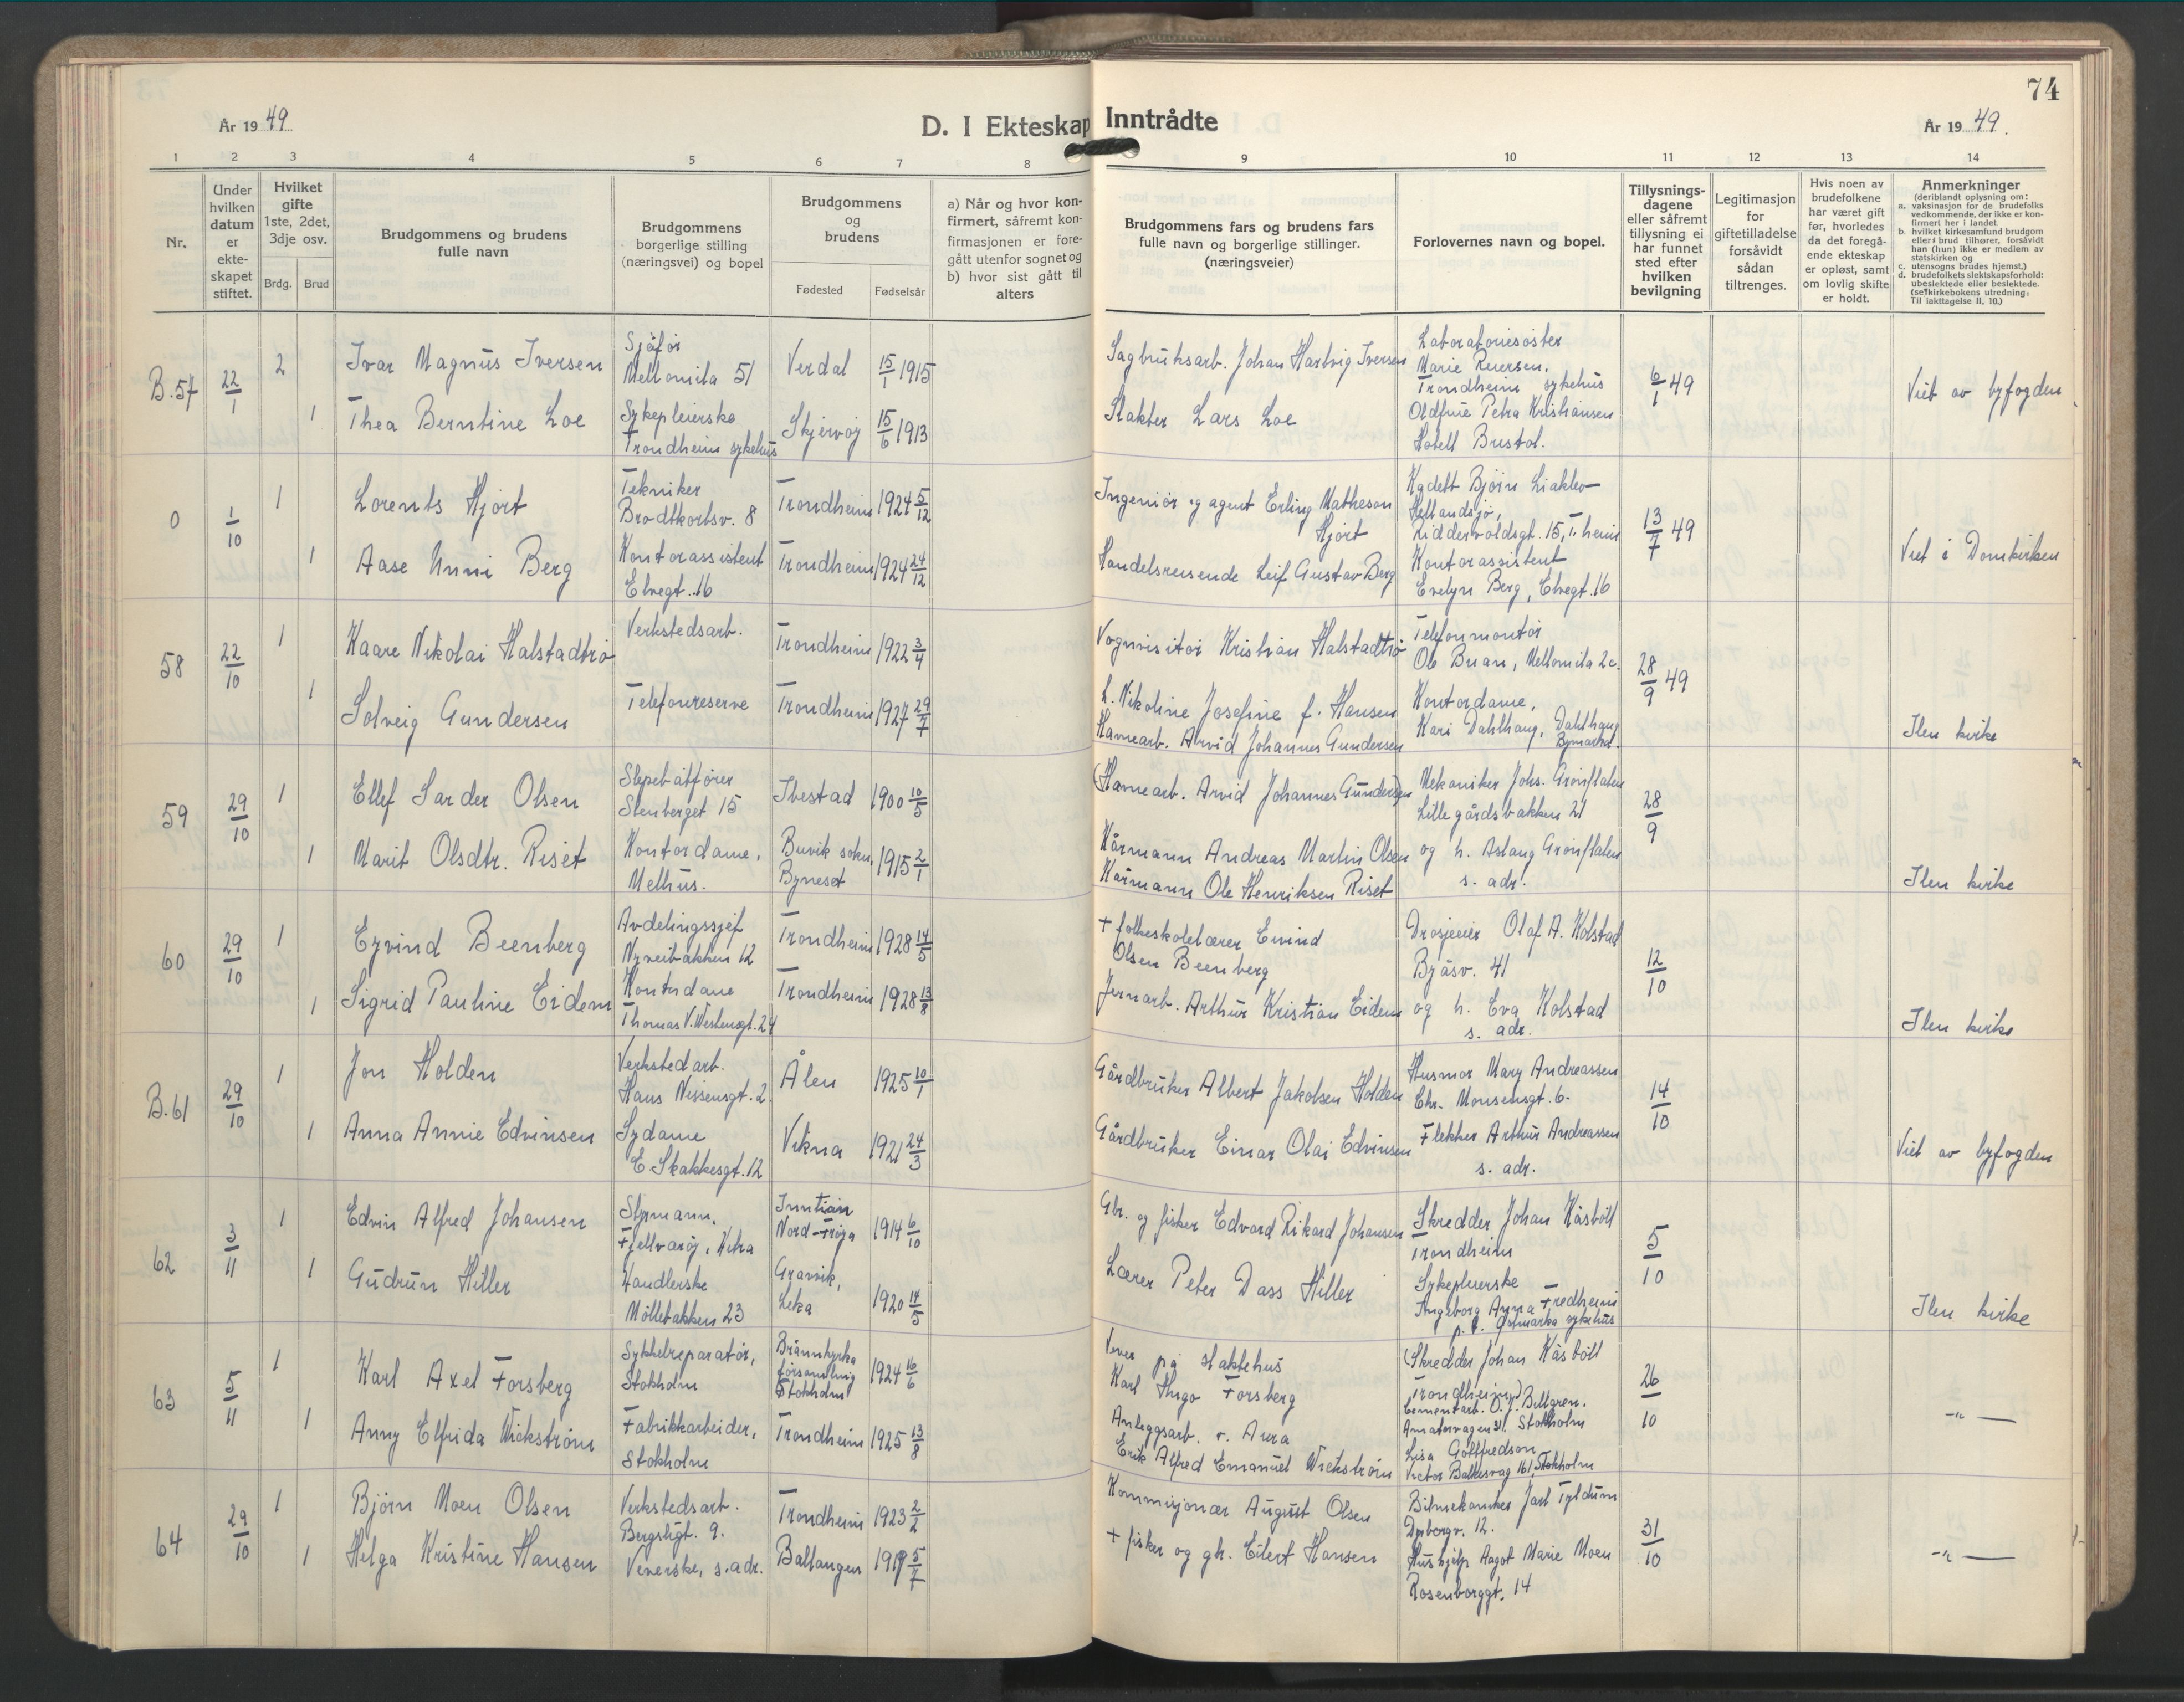 74
År 19 49
D. I Ekteskap Inntrådte
År 19 49.
1 2 3 4 5 6 7 8 9 10 11 12 13 14
Nr.
Under hvilken datum er ekteskapet stiftet.
Hvilket gifte 1ste, 2det, 3dje osv.
Brdg. Brud
Brudgommens og brudens fulle navn
Brudgommens borgerlige stilling (næringsvei) og bopel
Brudgommens og brudens
Fødested Fødselsår
a) Når og hvor konfirmert, såfremt konfirmasjonen er foregått utenfor sognet og b) hvor sist gått til alters
Brudgommens fars og brudens fars fulle navn og borgerlige stillinger. (næringsveier)
Forlovernes navn og bopel.
Tillysningsdagene eller såfremt tillysning ei har funnet sted efter hvilken bevilgning
Legitimasjon for giftetilladelse forsåvidt sådan tiltrenges.
Hvis noen av brudefolkene har været gift før, hvorledes da det foregående ekteskap er opløst, samt om lovlig skifte er holdt.
Anmerkninger
(deriblandt oplysning om:
a. vaksinasjon for de brudefolks vedkommende, der ikke er konfirmert her i landet.
b. hvilket kirkesamfund brudgom eller brud tilhører, forsåvidt han (hun) ikke er medlem av statskirken og
c. utensogns brudes hjemst.)
d. brudefolkets slektskapsforhold: ubeslektede eller beslektede. (se kirkebokens utredning: Til iakttagelse II, 10.)
B.57 22/1 2 Ivar Magnus Iversen
Sjåfør
Mellomila 51
Verdal 15/1 1915
Sagbruksarb. Johan Hartvig Iversen
Laboratoriesøster
Marie Reiersen.
Trondheim sykehus
6/1 49
Viet av byfogden
1 Thea Berntine Loe
Sykepleierske
Trondheim sykehus
Skjervøy 15/6 1913
Slakter Lars Loe
Oldfrue Petra Kristiansen
Hotell Bristol.
0 1/10 1 Lorents Hjort
Tekniker
Brodtkorbsv. 8
Trondheim 1924 5/12
Ingeniør og agent Erling Matheson
Hjort
Kadett Bjørn Liaklev
Hellandsjø,
Riddervoldsgt. 15, T.heim
13/7 49
Viet i Domkirken
1 Aase Unni Berg
Kontorassistent
Elvegt. 16
Trondheim 1924 24/12
Handelsreisende Leif Gustav Berg
Kontorassistent
Evelyn Berg, Elvegt. 16
58 22/10 1 Kaare Nikolai Halstadtrø
Verkstedsarb.
Trondheim 1922 3/4
Vognvisitør Kristian Halstadtrø
Telefonmontør
Ole Buan, Mellomila 2c.
28/9 49
1 Solveig Gundersen
Telefonreserve
Trondheim 1927 29/7
h. Nikoline Josefine f. Hansen
Havnearb. Arvid Johannes Gundersen
Kontordame,
Kari Dahlhaug, Dahlhaug
Bymarka.
Ilen kirke
59 29/10 1 Ellef Sarder Olsen
Slepebåtfører
Stenberget 15
Ibestad 1900 10/5
(Havnearb. Arvid Johannes Gundersen)
Mekaniker Johs. Grønflaten
Lillegårdsbakken 21
28/9
1 Marit Olsdtr. Riset
Kontordame,
Melhus.
Buvik sokn,
Byneset
1915 2/1
Kårmann Andreas Martin Olsen
Kårmann Ole Henriksen Riset
og h. Aslaug Grønflaten
s. adr.
Ilen kirke
60 29/10 1 Eyvind Beenberg
Avdelingssjef
Nyveibakken 12
Trondheim 1928 14/5
+ folkeskolelærer Eivind
Olsen Beenberg
Drosjeeier Olaf A. Kolstad
Byåsv. 41
12/10
1 Sigrid Pauline Eidem
Kontordame
Thomas V. Westensgt. 24
Trondheim 1928 13/8
Jernarb. Arthur Kristian Eidem
og h. Eva Kolstad
s. adr.
Ilen kirke
B.61 29/10 1 Jon Holden
Verkstedarb.
Hans Nissensgt. 2.
Ålen 1925 10/1
Gårdbruker Albert Jakobsen Holden
Husmor Mary Andreassen
Chr. Monsensgt. 6.
14/10
1 Anna Annie Edvinsen
Sydame
E. Skakkesgt. 12
Vikna 1921 24/3
Gårdbruker Einar Olai Edvinsen
Flekker Arthur Andreassen
s. adr.
Viet av byfogden
62 3/11 1 Edvin Alfred Johansen
Styrmann,
Fjellvarøy, Hitra
Inntian
Nord-Frøya
1914 6/10
Gbr. og fisker Edvard Rikard Johansen
Skredder Johan Kåsbøll
Trondheim
5/10
1 Gudrun Hiller
Handlerske
Møllebakken 23
Gravvik,
Leka
1920 14/5
Lærer Peter Dass Hiller
Sykepleierske
Ingeborg Anna Fredheim
p. t. Østmarka sykehus
Ilen kirke
63 5/11 1 Karl Axel Forsberg
Sykkelreparatør,
Stokholm
Brännkyrka
församling
Stokholm
1924 16/6
Vever på slaktehus
Karl Hugo Forsberg
(Skredder Johan Kåsbøll
Trondheim)
Cementarb. O. J. Billgren.
Amatørvägen 31. Stokholm
26/10
-"-
1 Anny Elfrida Wickstrøm
Fabrikkarbeider,
Stokholm
Trondheim 1925 13/8
Anleggsarb. v. Aura
Erik Alfred Emanuel Wickstrøm
Lisa Gottfredson
Victor Balksväg 161, Stokholm
64 29/10 1 Bjørn Moen Olsen
Verkstedsarb.
Bergsligt. 9.
Trondheim 1923 2/2
Kommisjonær August Olsen
Bilmekaniker Jarl Tyldum
Dyborgv. 12.
31/10
1 Helga Kristine Hansen
Veverske, s. adr.
Ballangen 1919 5/7
+ fisker og gbr. Eilert Hansen
Hushjelp Aagot Marie Moen
Rosenborggt. 14
-"-